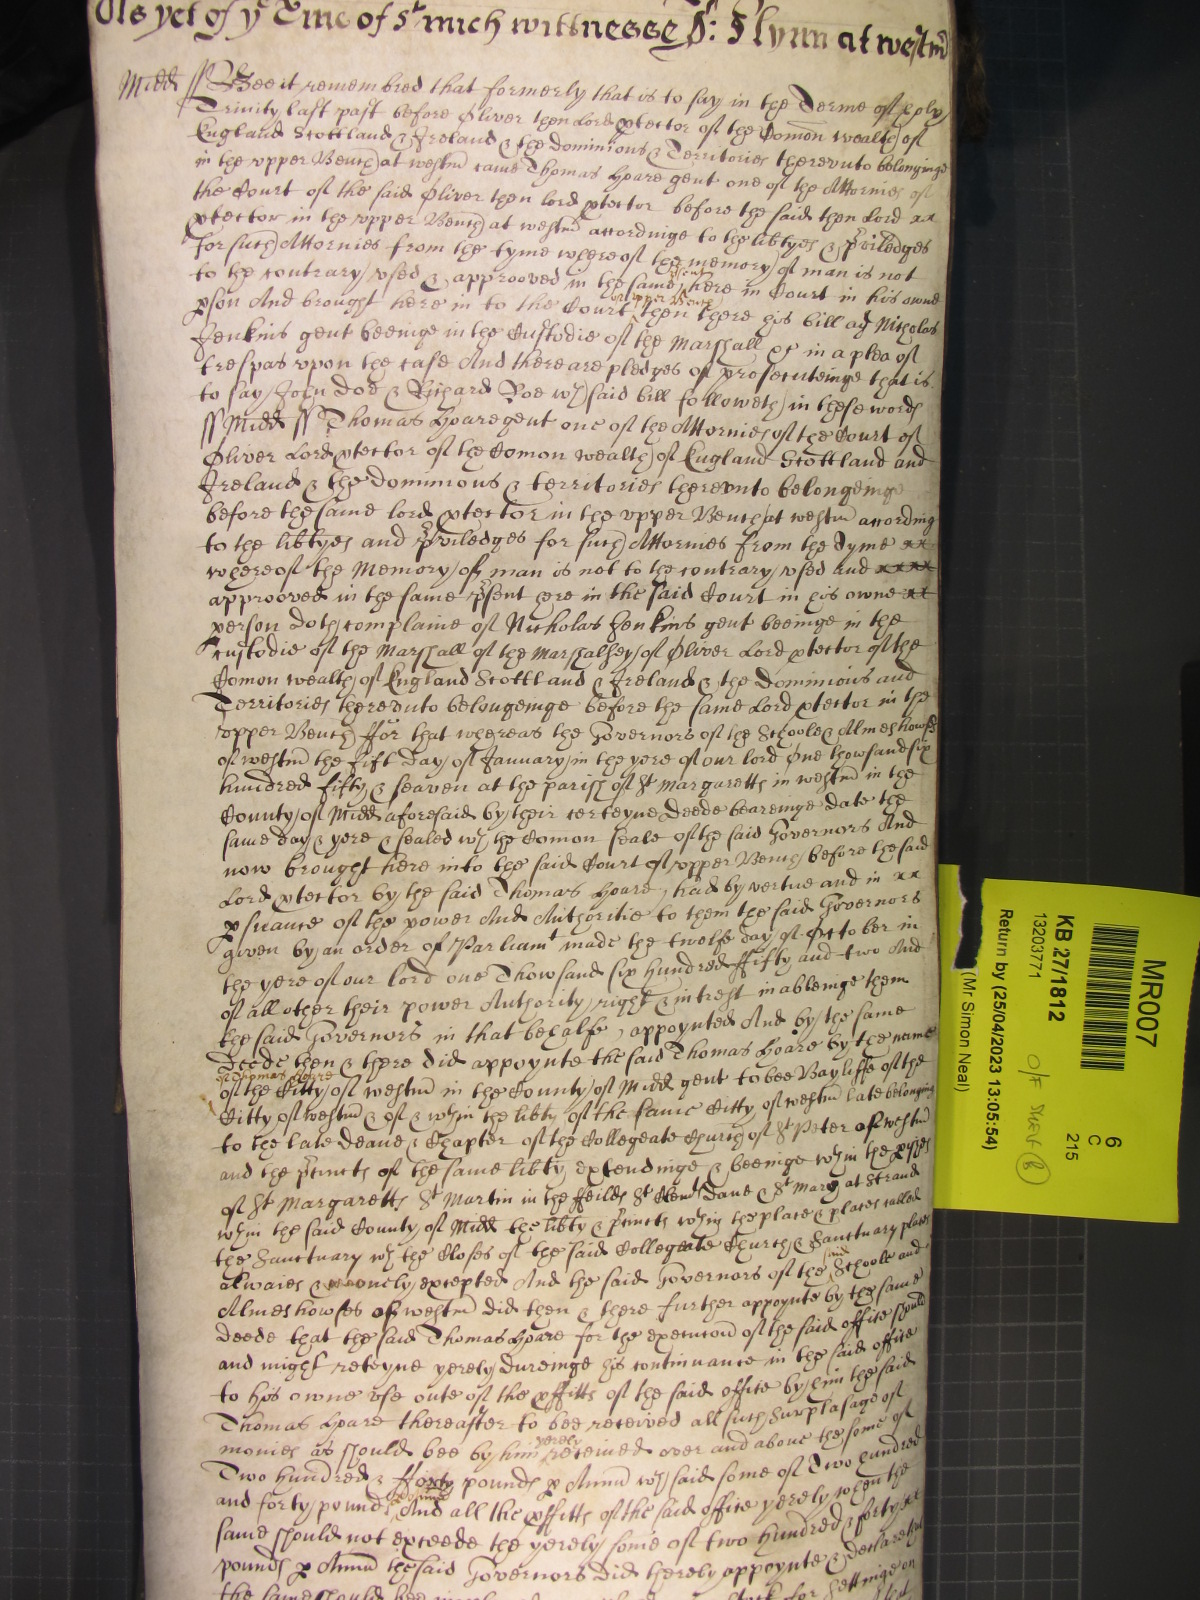 Als yet of yͤ Tᵐe of Sᵗ mich wittnesse P: Flynn at westmͬ
Midd ss Bee it remembred that formerly that is to say in the Terme of holy
Trinity last past before Oliver then Lord ptector of the Comon wealth of
England Scottland & Ireland & the dominions & Territories therevnto belonginge
in the vpper Bench at westm̄ came Thomas Hoare gent one of the Attornies of
the Court of the said Oliver then lord ptector before the said then Lord xx
ptector in the vpper Bench at westm̄ accordinge to the libtyes & pͬiviledges
for such Attornies from the tyme whereof the memory of man is not
to the contrary vsed & approoved in the same psent here in Court in his owne
pson And brought here in to the Court of vpper Bench then there his bill agͭ Nicholas
Jenkins gent beeinge in the Custodie of the Marshall &c in a plea of
trespas vpon the case And there are pledges of prosecuteinge that is
to say John Doe & Richard Roe wͨh said bill followeth in these words
ss Midd ss Thomas Hoare gent one of the Attornies of the Court of
Oliver Lord ptector of the Comon wealth of England Scottland and
Ireland & the dominions & territories therevnto belongeinge
before the same lord ptector in the vpper Bench at westm̄ according
to the libtyes and pͬiviledges for such Attornies from the tyme xx
whereof the Memory of man is not to the contrary vsed and xxxx
approoved in the same pͬsent here in the said Court in his owne xx
person doth complaine of Nicholas Jenkins gent beeinge in the
custodie of the Marshall of the Marshalsey of Oliver Lord ptector of the
Comon wealth of England Scottland & Ireland & the Dominions and
Territories therevnto belongeinge before the same Lord ptector in the
vpper Bench ffor that whereas the Governors of the Schoole & Almeshowses
of westm̄ the fift day of January in the yere of our lord One thowsand six
hundred fifty & seaven at the parish of Sͭ Margaretts in westm̄ in the
County of Midd aforesaid by their certeyne deede beareinge date the
same day & yere & sealed wͭh the Comon seale of the said Governors And
now brought here into the said Court of vpper Bench before the said
Lord ptector by the said Thomas Hoare, had by vertue and in xx
psuance of the power And Authoritie to them the said Governors
given by an order of Parliamͭ made the twelfe day of October in
the yere of our lord one Thowsand six hundred ffifty and two And
of all other their power Authority right & intrest inableinge them
the said Governors in that behalfe, appoynted And by the same
deede then & there did appoynte the said Thomas Hoare by the name
of Thomas Hoare of the Citty of westm̄ in the County of Midd gent to bee Bayliffe of the
Citty of westm̄ & of & wͭhin the libty of the same Citty of westm̄ late belonging
to the late Deane & Chapter of the Collegeate Church of Sͭ Peter of westm̄
and the pͬcincts of the same libty extendinge & beeinge wͭhin the pishes
of Sͭ Margaretts Sͭ Martin in the ffeilds Sͭ Clemͭ Dane & Sͭ Mary at Strand
wͭhin the said County of Midd the libty & pͬcincts wͭhin the place & places called
the Sanctuary wͭh the Closes of the said Collegeate Church & Sanctuary places
alwaies & onely excepted And the said Governors of the said Schoole and
Almeshowses of westm̄ did then & there further appoynte by the same
deede that the said Thomas Hoare for the execucon of the said office should
and might reteyne yerely dureinge his continuance in the said office
to his owne vse oute of the pffitts of the said office by him the said
Thomas Hoare thereafter to bee received all such Surplasage of
monies as should bee by him yerely received over and above the some of
Two hundred & fforty pounds p Annū wͨh said some of Two hundred
and forty pounds And all the pffitts of the said office yerely when the
same should not exceede the yerely some of two hundred & forty xx
pounds p Annū the said Governors did thereby appoynte & declare that
the same should bee
MR007
6
C
215
KB 27/1812
13203771
O/F SHEET 8
Return by (25/04/2023 13:05:54)
(Mr Simon Neal)